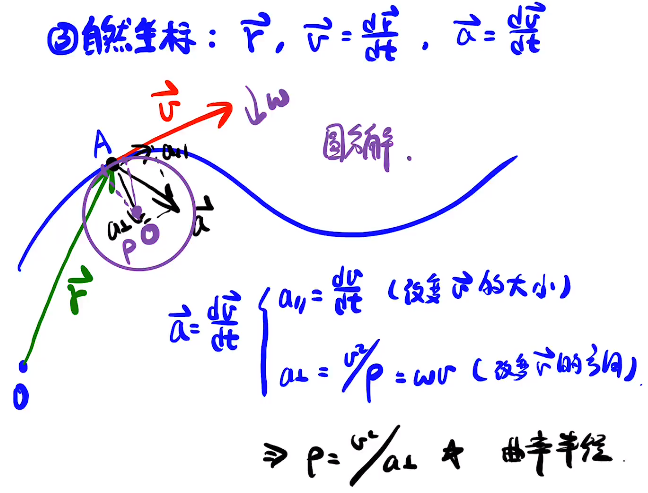 ③自然坐标: r⃗, v⃗ = dr⃗/dt, a⃗ = dv⃗/dt
v⃗
↓ω
A
a∥
圆分解.
a⊥
O
a⃗
ρ
r⃗
a⃗ = dv⃗/dt
a∥ = dv/dt (改变v⃗的大小)
a⊥ = v²/ρ = ωv (改变v⃗的方向)
O
⇒ ρ = v²/a⊥ ☆ 曲率半径.